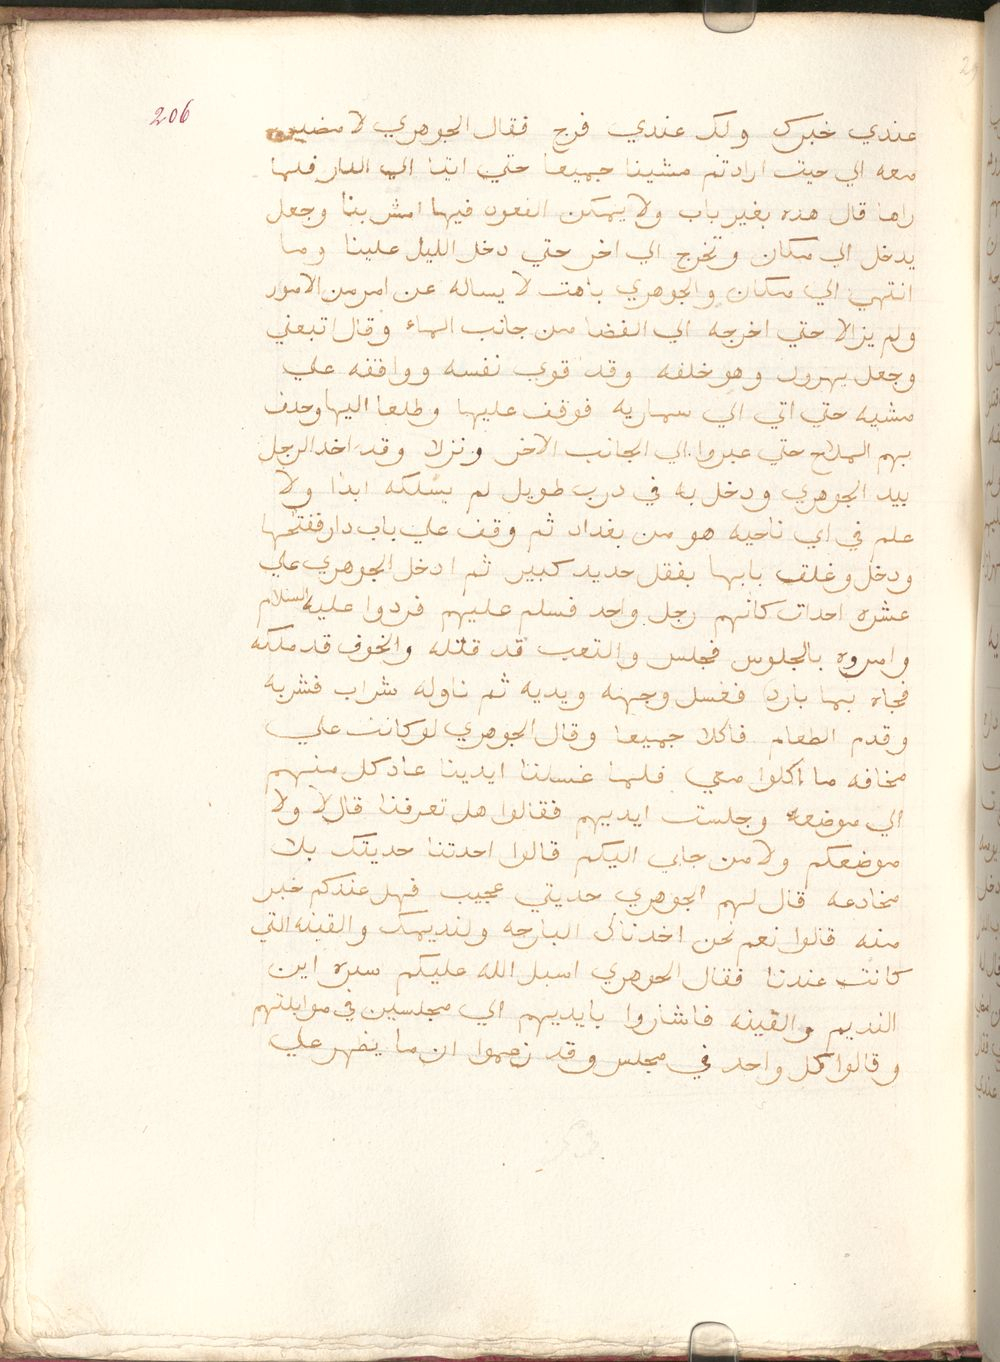 206
عندي خبرك ولك عندي فرج فقال الجوهري لا مضين
معه الي حيث ارادتم مشينا جميعا حتي اتينا الي الدار فلما
راها قال هذه بغير باب ولا يمكن القعود فيها امش بنا وجعل
يدخل الي مكان وتخرج الي اخر حتي دخل الليل علينا وما
انتهي الي مكان والجوهري باهت لا يساله عن امر من الامور
ولم يزالا حتي اخرجه الي الفضا من جانب الماء وقال اتبعني
وجعل يهرول وهو خلفه وقد قوي نفسه ووافقه علي
مشيه حتي اتي الي سماريه فوقف عليها وطلعا اليها وحدف
بهم الملاح حتي عبروا الي الجانب الاخر ونزلا وقد اخد الرجل
بيد الجوهري ودخل به في درب طويل لم يسلكه ابدا ولا
علم في اي ناحيه هو من بغداد ثم وقف علي باب دار ففتحها
ودخل وغلق بابها بقفل حديد كبير ثم ادخل الجوهري علي
عشره احدات كانهم رجل واحد فسلم عليهم فردوا عليه السلام
وامروه بالجلوس فجلس والتعب قد قتله والخوف قد ملكه
فجاه بما بارد فغسل وجهه ويديه ثم ناوله شراب فشربه
وقدم الطعام فاكلا جميعا وقال الجوهري لو كانت علي
مخافه ما اكلوا معي فلما غسلنا ايدينا عاد كل منهم
الي موضعه وجلست ايديهم فقالوا هل تعرفنا قال لا ولا
موضعكم ولا من جابي اليكم قالوا احدتنا حديتك بلا
مخادعه قال لهم الجوهري حديتي عجيب فهل عندكم خبر
منه قالوا نعم نحن اخدنالك البارحه ولنديمك والقينه التي
كانت عندنا فقال الجوهري اسبل الله عليكم ستره اين
النديم والقينه فاشاروا بايديهم الي مجلسين في موابلتهم
وقالوا كل واحد في مجلس وقد زعموا ان ما يضهر علي